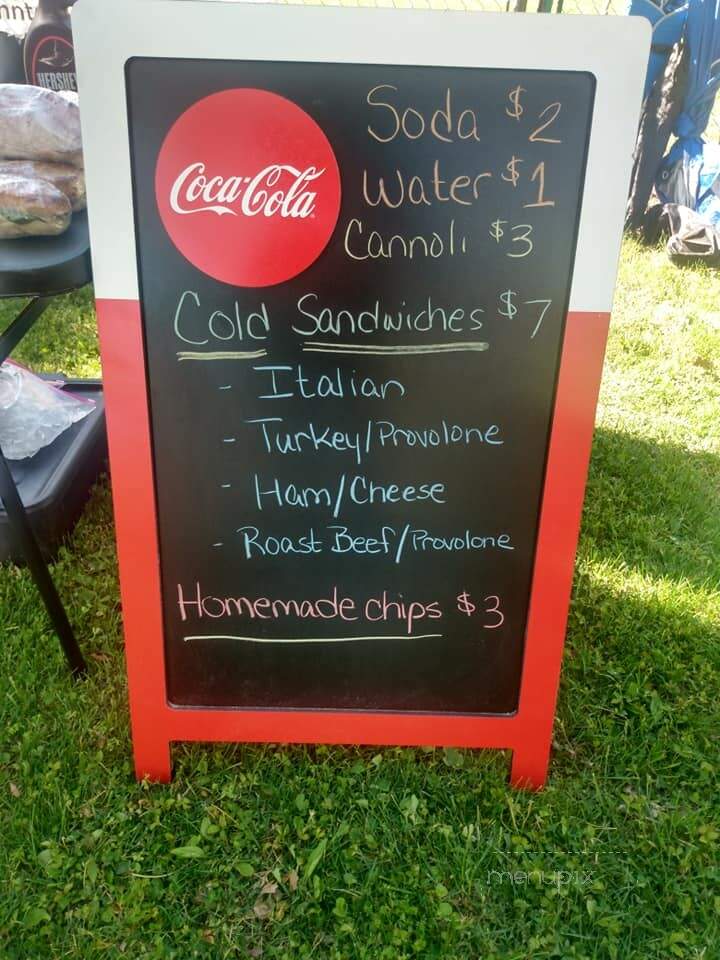 HERSHE
Coca-Cola
Soda $2
Water $1
Cannoli $3
Cold Sandwiches $7
- Italian
- Turkey/Provolone
- Ham/Cheese
- Roast Beef/Provolone
Homemade chips $3
menupix